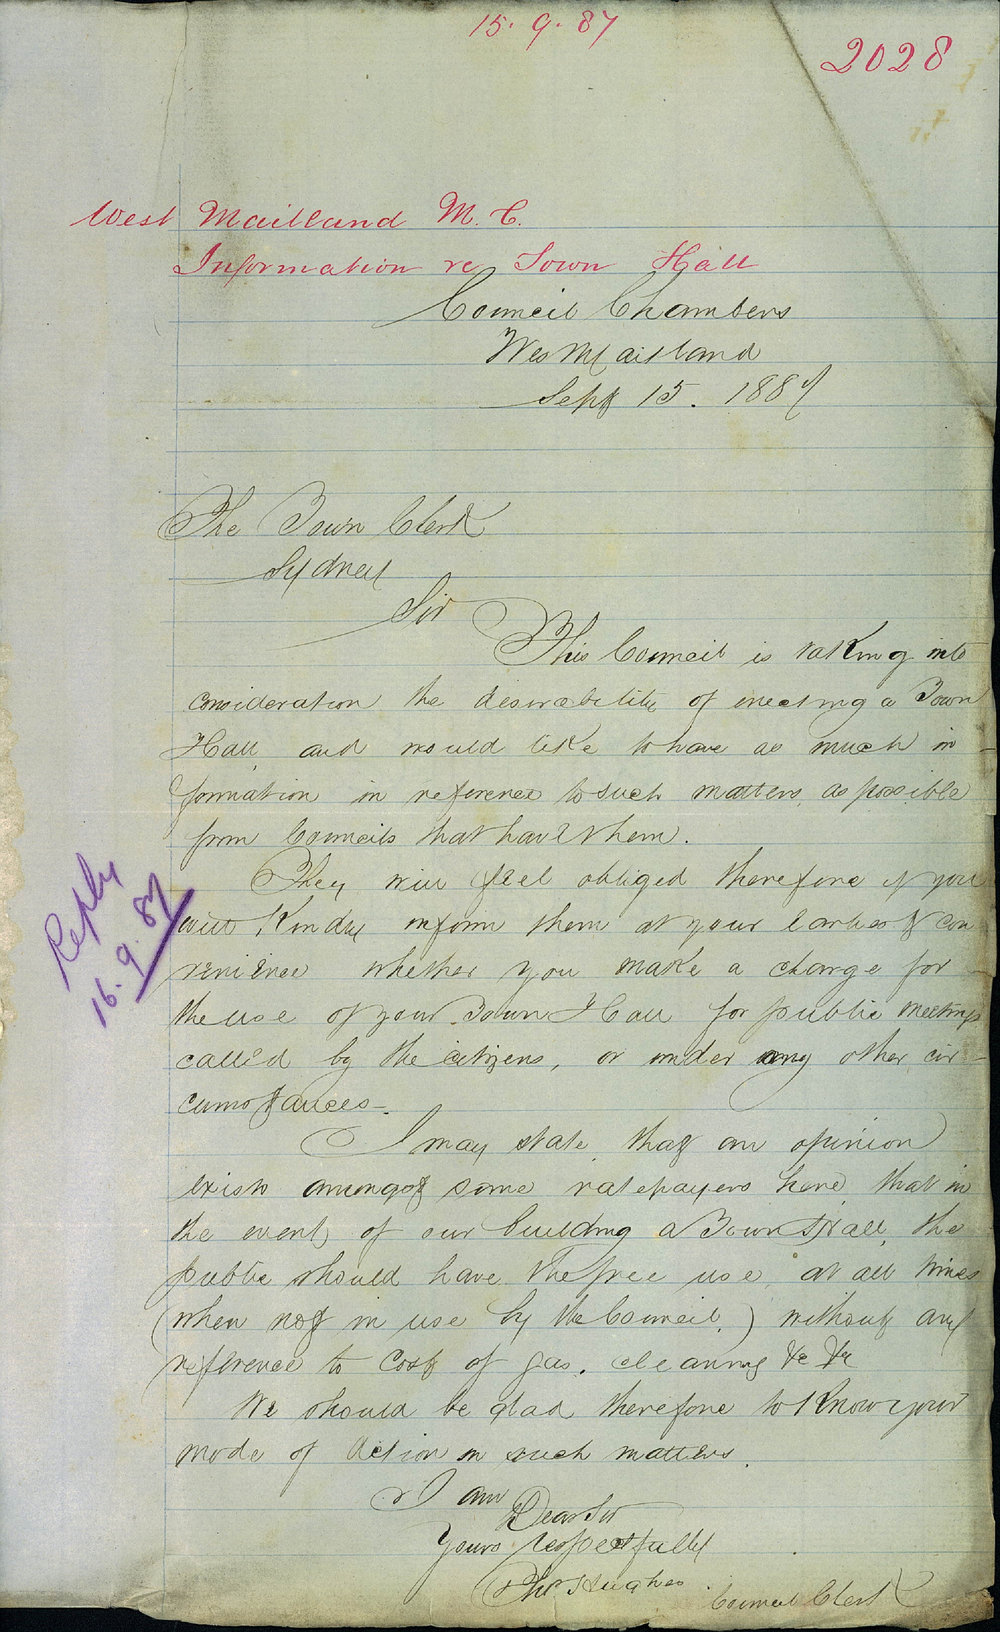 15.9.87
2028
West Maitland M.C.
Information re Town Hall
Council Chambers
West Maitland
Sept 15. 1887
The Town Clerk
Sydney
Sir
This Council is taking into
consideration the desirability of erecting a Town
Hall, and would like to have as much in-
formation in reference to such matters, as possible
from Councils that have them.
They will feel obliged therefore if you
will kindly inform them at your earliest con-
venience whether you make a charge for
the use of your Town Hall for public meetings
called by the citizens, or under any other cir-
cumstances-
I may state that an opinion
exists amongst some ratepayers here, that in
the event, of our building a Town Hall, the
public should have the free use, at all times
(when not in use by the Council.) without any
reference to cost of gas. cleaning &c &c
We should be glad therefore to know your
mode of action in such matters.
I am
Dear Sir
Yours respectfully
Thos Hughes
Council Clerk
Reply
16.9.87